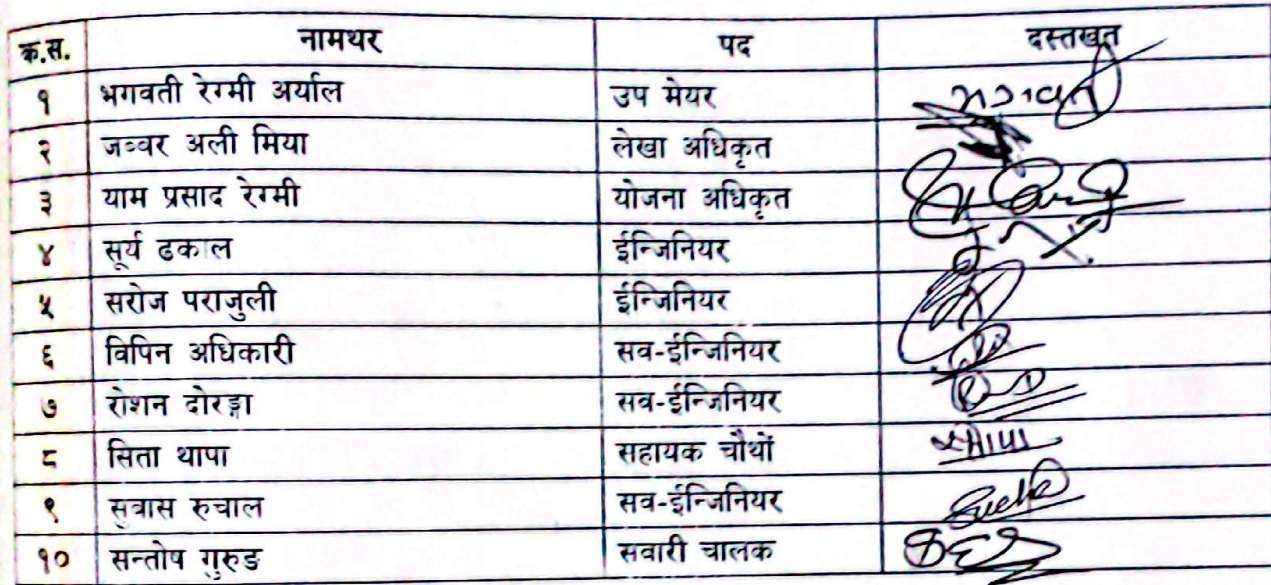 क.स. नामथर पद दस्तखत
१ भगवती रेग्मी अर्याल उप मेयर भगवती
२ जब्बर अली मिया लेखा अधिकृत
३ याम प्रसाद रेग्मी योजना अधिकृत
४ सूर्य ढकाल ईन्जिनियर
५ सरोज पराजुली ईन्जिनियर
६ विपिन अधिकारी सव-ईन्जिनियर
७ रोशन दोरङ्गा सव-ईन्जिनियर
८ सिता थापा सहायक चौथों
९ सुवास रुचाल सव-ईन्जिनियर
१० सन्तोष गुरुङ सवारी चालक